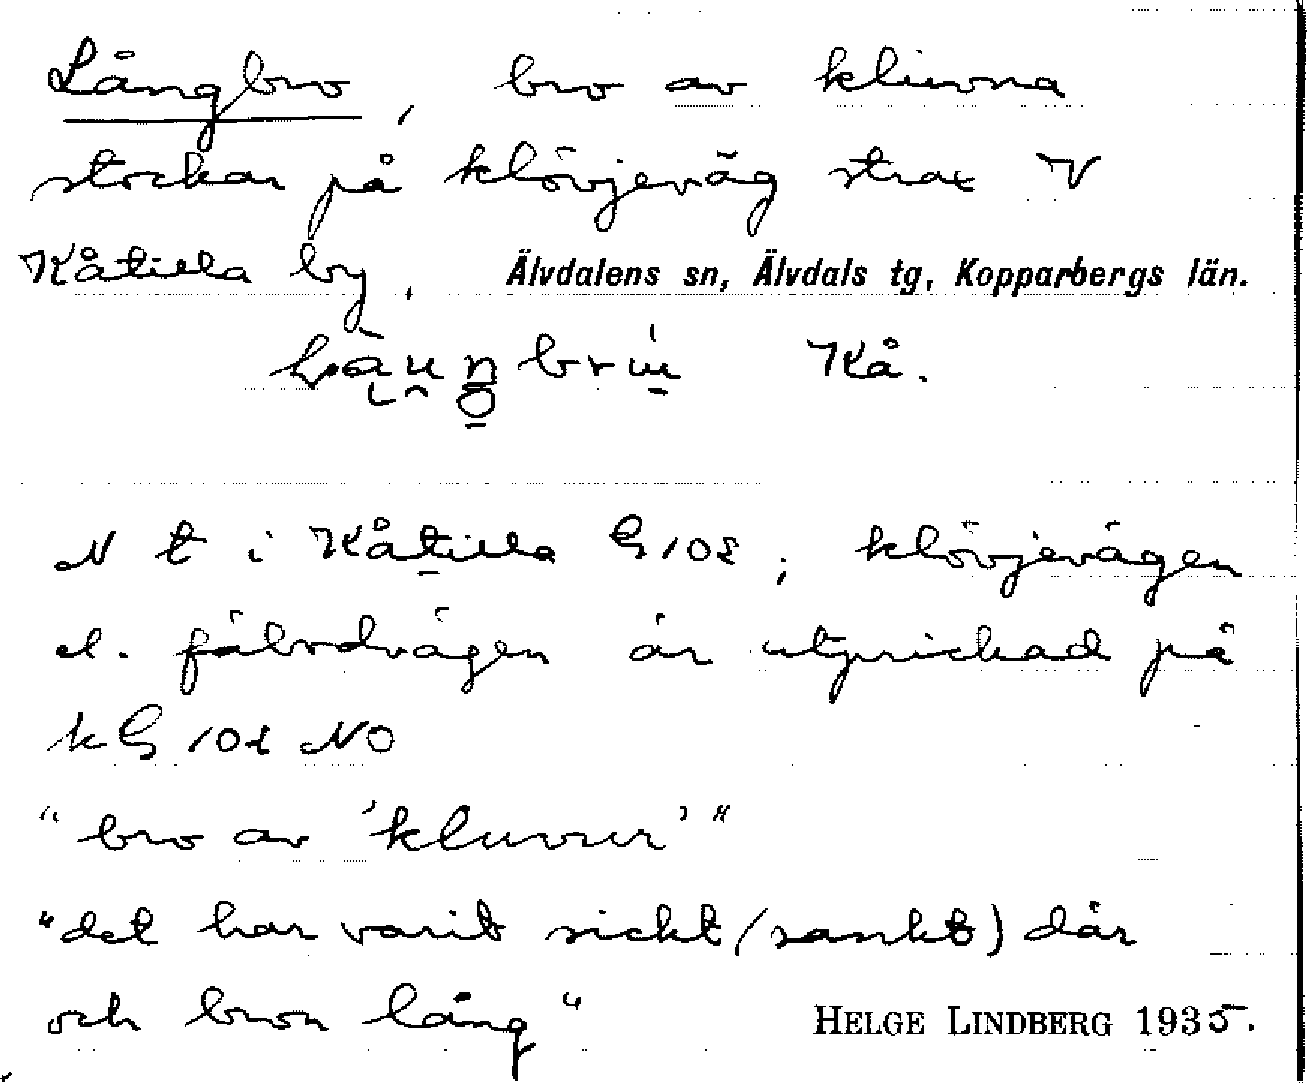 Långbro, bro av kluvna
stockar på klövjeväg strax V
Kåtilla by, Älvdalens sn, Älvdals tg, Kopparbergs län.
Kå.
N t i Kåtilla G 10 ; klövjevägen
el. fäbodvägen är utprickad på
k G 10 NO
"bro av 'kluvur'"
"det har varit sickt (sankt) där
och bron lång"
HELGE LINDBERG 1935.